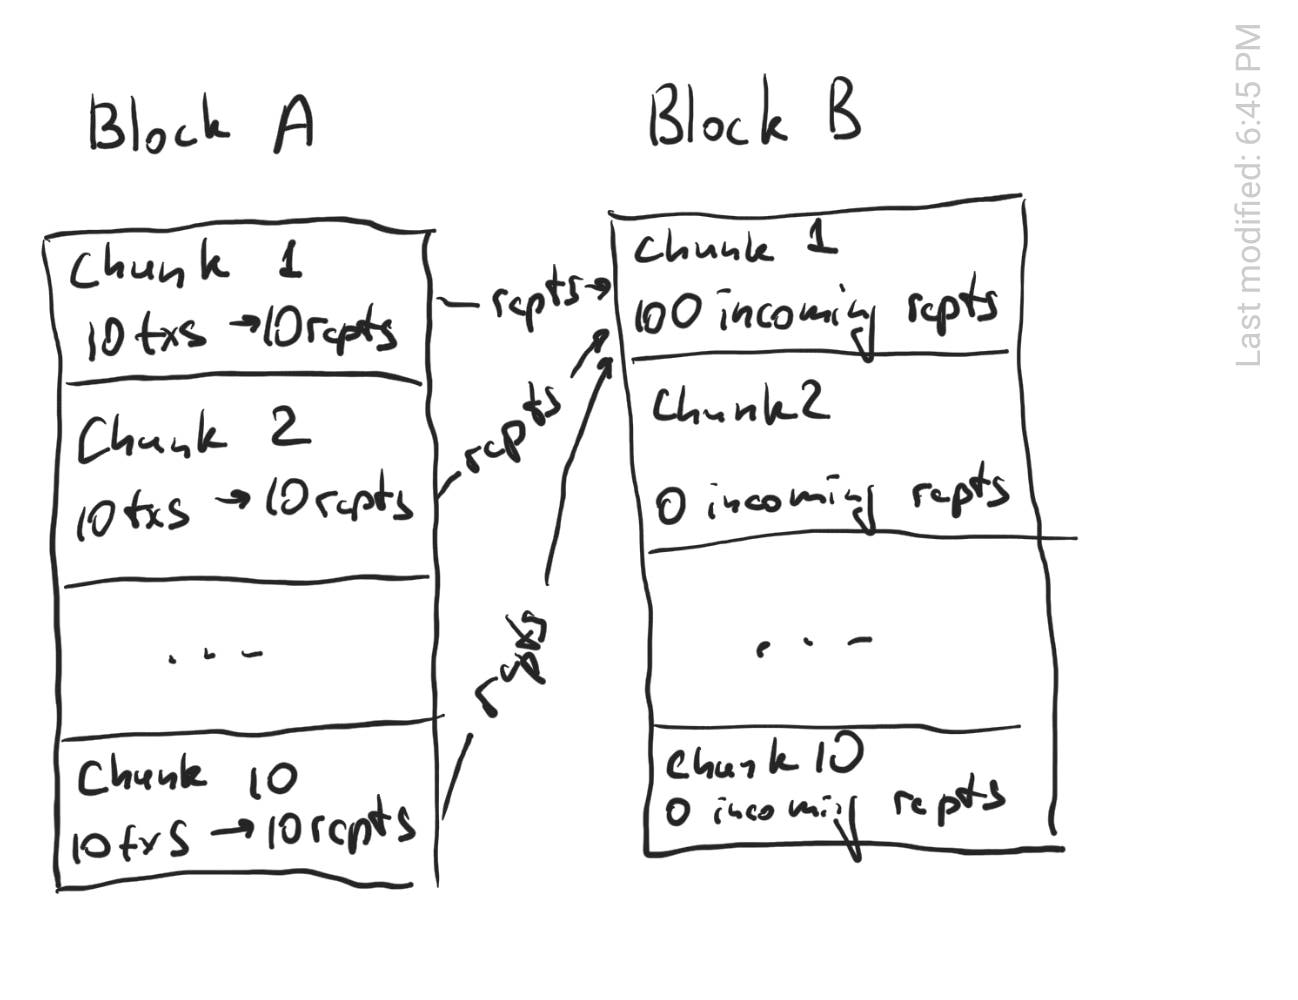 Block A
Chunk 1
10 txs → 10 rcpts
Chunk 2
10 txs → 10 rcpts
...
Chunk 10
10 txs → 10 rcpts
rcpts
rcpts
rcpts
Block B
Chunk 1
100 incoming rcpts
Chunk 2
0 incoming rcpts
...
Chunk 10
0 incoming rcpts
Last modified: 6:45 PM